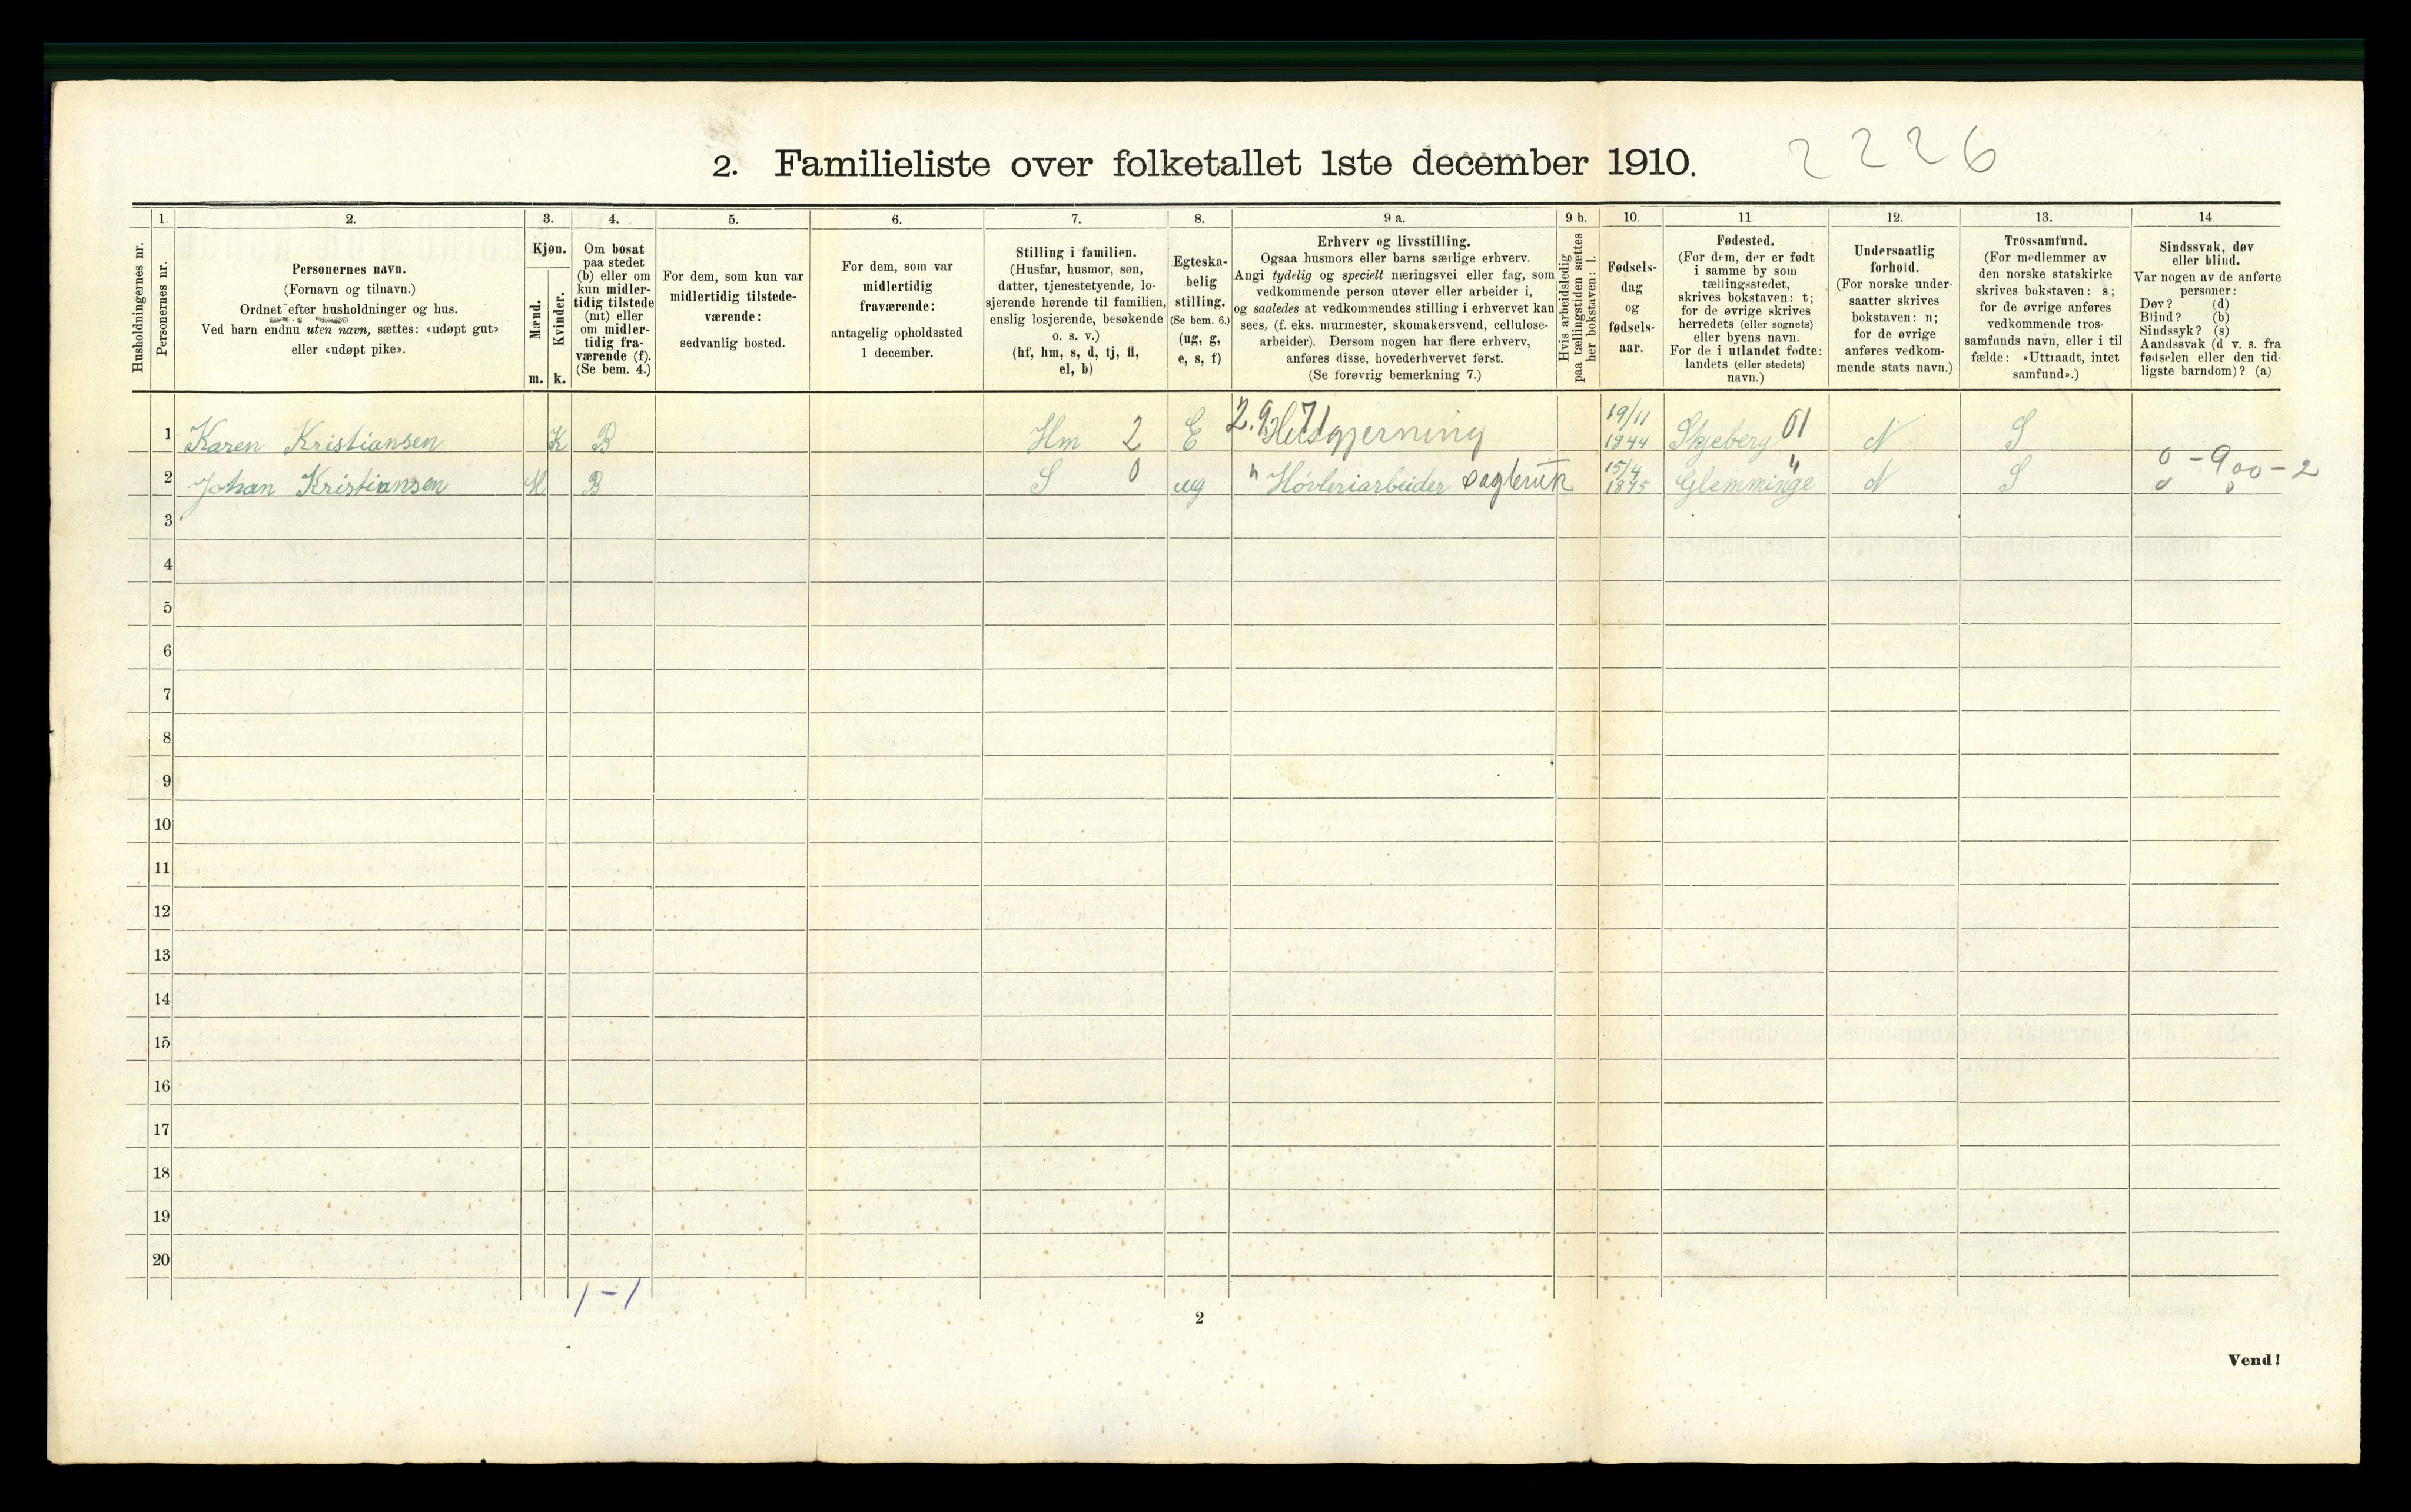 2. Familieliste over folketallet 1ste december 1910.
2226
1. 2. 3. 4. 5. 6. 7. 8. 9 a. 9 b. 10. 11. 12. 13. 14.
Husholdningernes nr.
Personernes nr.
Personernes navn.
(Fornavn og tilnavn.)
Ordnet efter husholdninger og hus.
Ved barn endnu uten navn, sættes: «udøpt gut»
eller «udøpt pike».
Kjøn.
Mænd.
Kvinder.
m. k.
Om bosat
paa stedet
(b) eller om
kun midler-
tidig tilstede
(mt) eller
om midler-
tidig fra-
værende (f).
(Se bem. 4.)
For dem, som kun var
midlertidig tilstede-
værende:
sedvanlig bosted.
For dem, som var
midlertidig
fraværende:
antagelig opholdssted
1 december.
Stilling i familien.
(Husfar, husmor, søn,
datter, tjenestetyende, lo-
sjerende hørende til familien,
enslig losjerende, besøkende
o. s. v.)
(hf, hm, s, d, tj, fl,
el, b)
Egteska-
belig
stilling.
(Se bem. 6.)
(ug, g,
e, s, f)
Erhverv og livsstilling.
Ogsaa husmors eller barns særlige erhverv.
Angi tydelig og specielt næringsvei eller fag, som
vedkommende person utøver eller arbeider i,
og saaledes at vedkommendes stilling i erhvervet kan
sees, (f. eks. murmester, skomakersvend, cellulose-
arbeider). Dersom nogen har flere erhverv,
anføres disse, hovederhvervet først.
(Se forøvrig bemerkning 7.)
Hvis arbeidsledig
paa tællingstiden sættes
her bokstaven: l.
Fødsels-
dag
og
fødsels-
aar.
Fødested.
(For dem, der er født
i samme by som
tællingsstedet,
skrives bokstaven: t;
for de øvrige skrives
herredets (eller sognets)
eller byens navn.
For de i utlandet fødte:
landets (eller stedets)
navn.)
Undersaatlig
forhold.
(For norske under-
saatter skrives
bokstaven: n;
for de øvrige
anføres vedkom-
mende stats navn.)
Trossamfund.
(For medlemmer av
den norske statskirke
skrives bokstaven: s;
for de øvrige anføres
vedkommende tros-
samfunds navn, eller i til
fælde: «Uttraadt, intet
samfund».)
Sindssvak, døv
eller blind.
Var nogen av de anførte
personer:
Døv? (d)
Blind? (b)
Sindssyk? (s)
Aandssvak (d v. s. fra
fødselen eller den tid-
ligste barndom)? (a)
1 Karen Kristiansen K B Hm 2 E 2.9.71 Husgjerning 19/11 1844 Skjeberg 01 N S
0 - 900 - 2
2 Johan Kristiansen M B S 0 ug " Høvleriarbeider sagbruk 15/4 1875 Glemminge " N S
3
4
5
6
7
8
9
10
11
12
13
14
15
16
17
18
19
20
1-1
2
Vend!